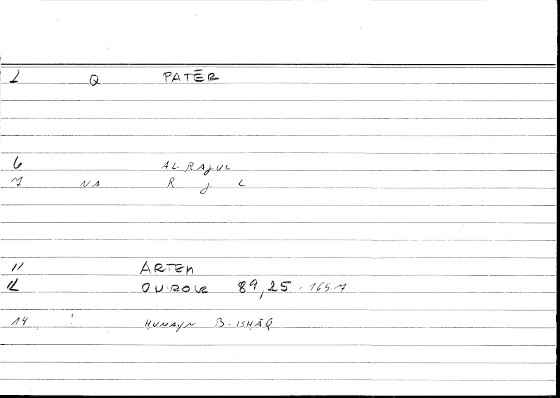 2 Q PATĒR
6 AL-RAJUL
7 NA R J L
11 ARTEM
12 89,25
14 HUNAYN B. ISHĀQ